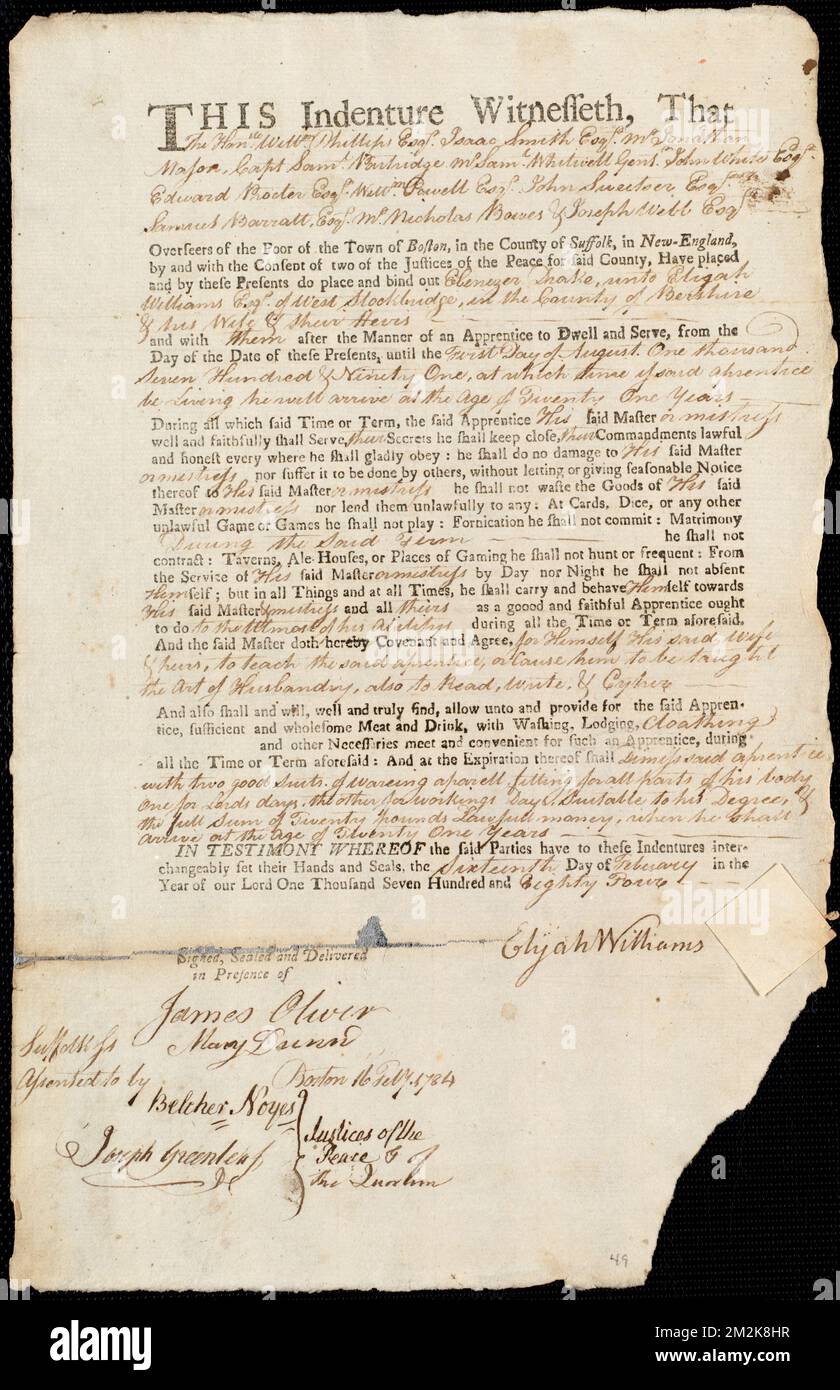 THIS Indenture Witnesseth, That
The Hon.ble Will.m Phillips Esq.r Isaac Smith Esq.r M.r Jonathan
Mason, Capt Sam.l Partridge M.r Sam.l Whitwell Gen.t John White Esq.r
Edward Procter Esq.r Will.m Powell Esq.r John Sweetser Esq.r
Samuel Barratt, Esq.r M.r Nicholas Bowes & Joseph Webb Esq.r
Overseers of the Poor of the Town of Boston, in the County of Suffolk, in New-England,
by and with the Consent of two of the Justices of the Peace for said County, Have placed
and by these Presents do place and bind out Ebenezer unto Elijah
Williams Esq.r of West Stockbridge, in the County of Bershire
& his Wife & their Heirs
and with them after the Manner of an Apprentice to Dwell and Serve, from the
Day of the Date of these Presents, until the First Day of August. One thousand
Seven Hundred & Ninety One, at which time if said aprentice
be Living he will arrive at the Age of Twenty One Years
During all which said Time or Term, the said Apprentice His said Master or mistress
well and faithfully shall Serve, their Secrets he shall keep close, their Commandments lawful
and honest every where he shall gladly obey : he shall do no damage to His said Master
or mistress nor suffer it to be done by others, without letting or giving seasonable Notice
thereof to His said Master or mistress he shall not waste the Goods of His said
Master or mistress nor lend them unlawfully to any : At Cards, Dice, or any other
unlawful Game or Games he shall not play : Fornication he shall not commit : Matrimony
During the said Term he shall not
contract : Taverns, Ale-Houses, or Places of Gaming he shall not hunt or frequent : From
the Service of His said Master or mistress by Day nor Night he shall not absent
Himself ; but in all Things and at all Times, he shall carry and behave Himself towards
His said Master & mistress and all theirs as a goood and faithful Apprentice ought
to do to the Utmost of his Abilities during all the Time or Term aforesaid.
And the said Master doth hereby Covenant and Agree, for Himself His said Wife
& heirs, to teach the said aprentice, or Cause him to be taught
the Art of Husbandry, also to Read, Write, & Cypher
And also shall and will, well and truly find, allow unto and provide for the said Appren-
tice, sufficient and wholesome Meat and Drink, with Washing, Lodging, Cloathing
and other Necessaries meet and convenient for such an Apprentice, during
all the Time or Term aforesaid : And at the Expiration thereof shall Dimiss said aprentice
with two good Suits. of wareing aparell, fitting for all parts of his body
One for Lords days, the other for workings Days, Suitable to his Degree, &
the full Sum of Twenty pounds Lawfull money, when he Shall
arrive at the Age of Twenty One Years
IN TESTIMONY WHEREOF the said Parties have to these Indentures inter-
changeably set their Hands and Seals, the Sixteenth Day of February in the
Year of our Lord One Thousand Seven Hundred and Eighty Four
Elijah Williams
Signed, Sealed and Delivered
in Presence of
James Oliver
Mary
Suffolk ss
Assented to by Boston 16 Feby. 1784
Belcher Noyes
Joseph Greenleaf
Justices of the
Peace & of
the Quorum
49
alamy
Image ID: 2M2K8HR
www.alamy.com